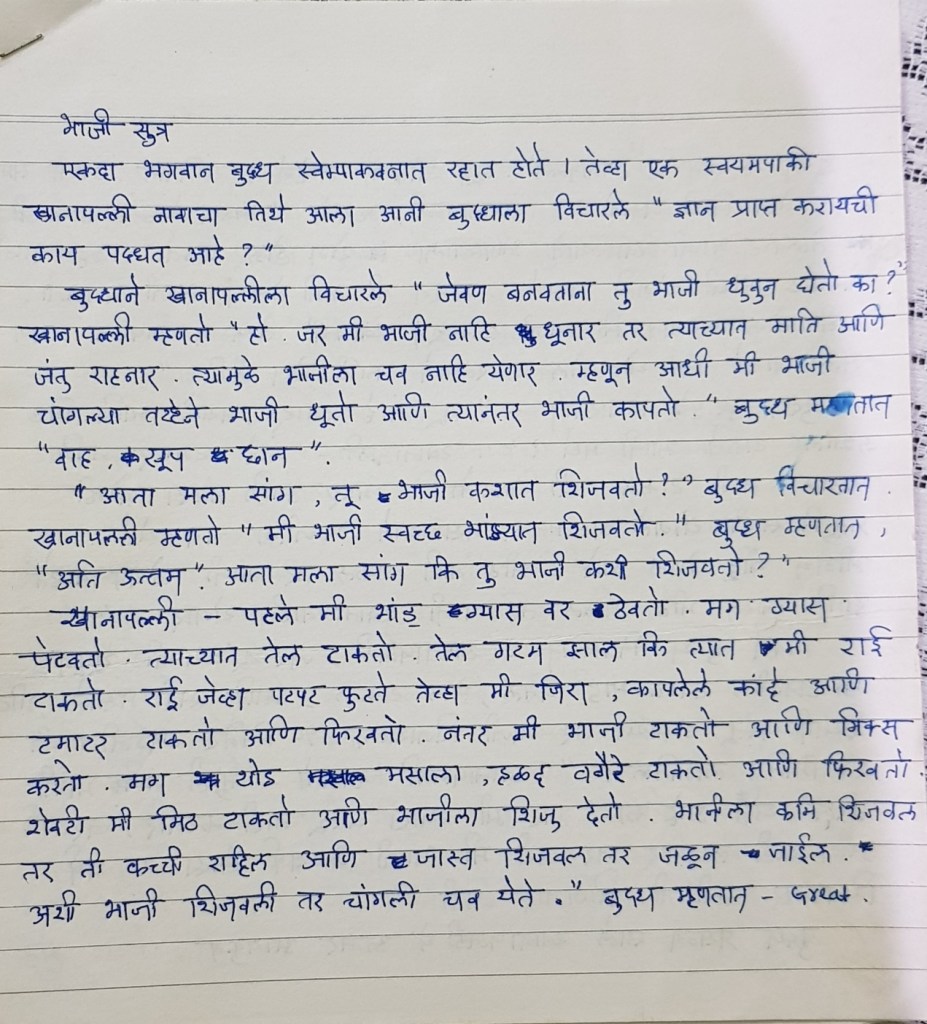 भाजी सुत्र
एकदा भगवान बुध्ध स्वेम्पाकवनात रहात होते । तेव्हा एक स्वयमपाकी
खानापल्ली नावाचा तिथे आला आनी बुध्धाला विचारले " ज्ञान प्राप्त करायची
काय पध्धत आहे ? "
बुध्धाने खानापल्लीला विचारले " जेवण बनवताना तु भाजी धुवुन घेतो का ? "
खानापल्ली म्हणतो " हो . जर मी भाजी नाहि धूनार तर त्याच्यात माति आणि
जंतु राहनार . त्यामुके भाजीला चव नाहि येणार . म्हणून आधी मी भाजी
चांगल्या तऱ्हेने भाजी धूतो आणि त्यानंतर भाजी कापतो . " बुध्ध म्हणतात
" वाह , खूप छान " .
" आता मला सांग , तू भाजी कशात शिजवतो ? " बुध्ध विचारतात .
खानापल्ली म्हणतो " मी भाजी स्वच्छ भांड्यात शिजवतो . " बुध्ध म्हणतात ,
" अति ऊत्तम " . आता मला सांग कि तु भाजी कशी शिजवतो ? "
खानापल्ली - पहले मी भांड ग्यास वर ठेवतो . मग ग्यास
पेटवतो . त्याच्यात तेल टाकतो . तेल गरम झाल कि त्यात मी राई
टाकतो . राई जेव्हा पटपट फुटते तेव्हा मी जिरा , कापलेले कांदे आणि
टमाटर टाकतो आणि फिरवतो . नंतर मी भाजी टाकतो आणि मिक्स
करतो . मग थोड मसाला , हळद वगैरे टाकतो आणि फिरवतो .
शेवटी मी मिठ टाकतो आणि भाजीला शिजु देतो . भाजीला कमि शिजवल
तर ती कच्ची राहिल आणि जास्त शिजवल तर जळून जाईल .
अशी भाजी शिजवली तर चांगली चव येते . " बुध्ध म्हणतात - Great .